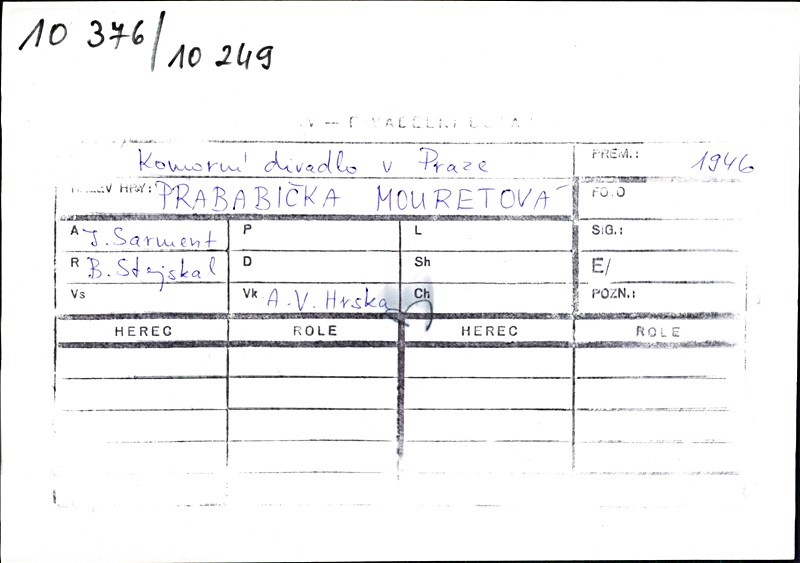 10 376/10 249
Komorní divadlo v Praze PREM.: 1946
HRY: PRABABIČKA MOURETOVÁ FOTO
A J. Sarment P L SIG.:
R B. Stejskal D Sh E/
Vs Vk A.V. Hrska Ch POZN.:
HEREC ROLE HEREC ROLE